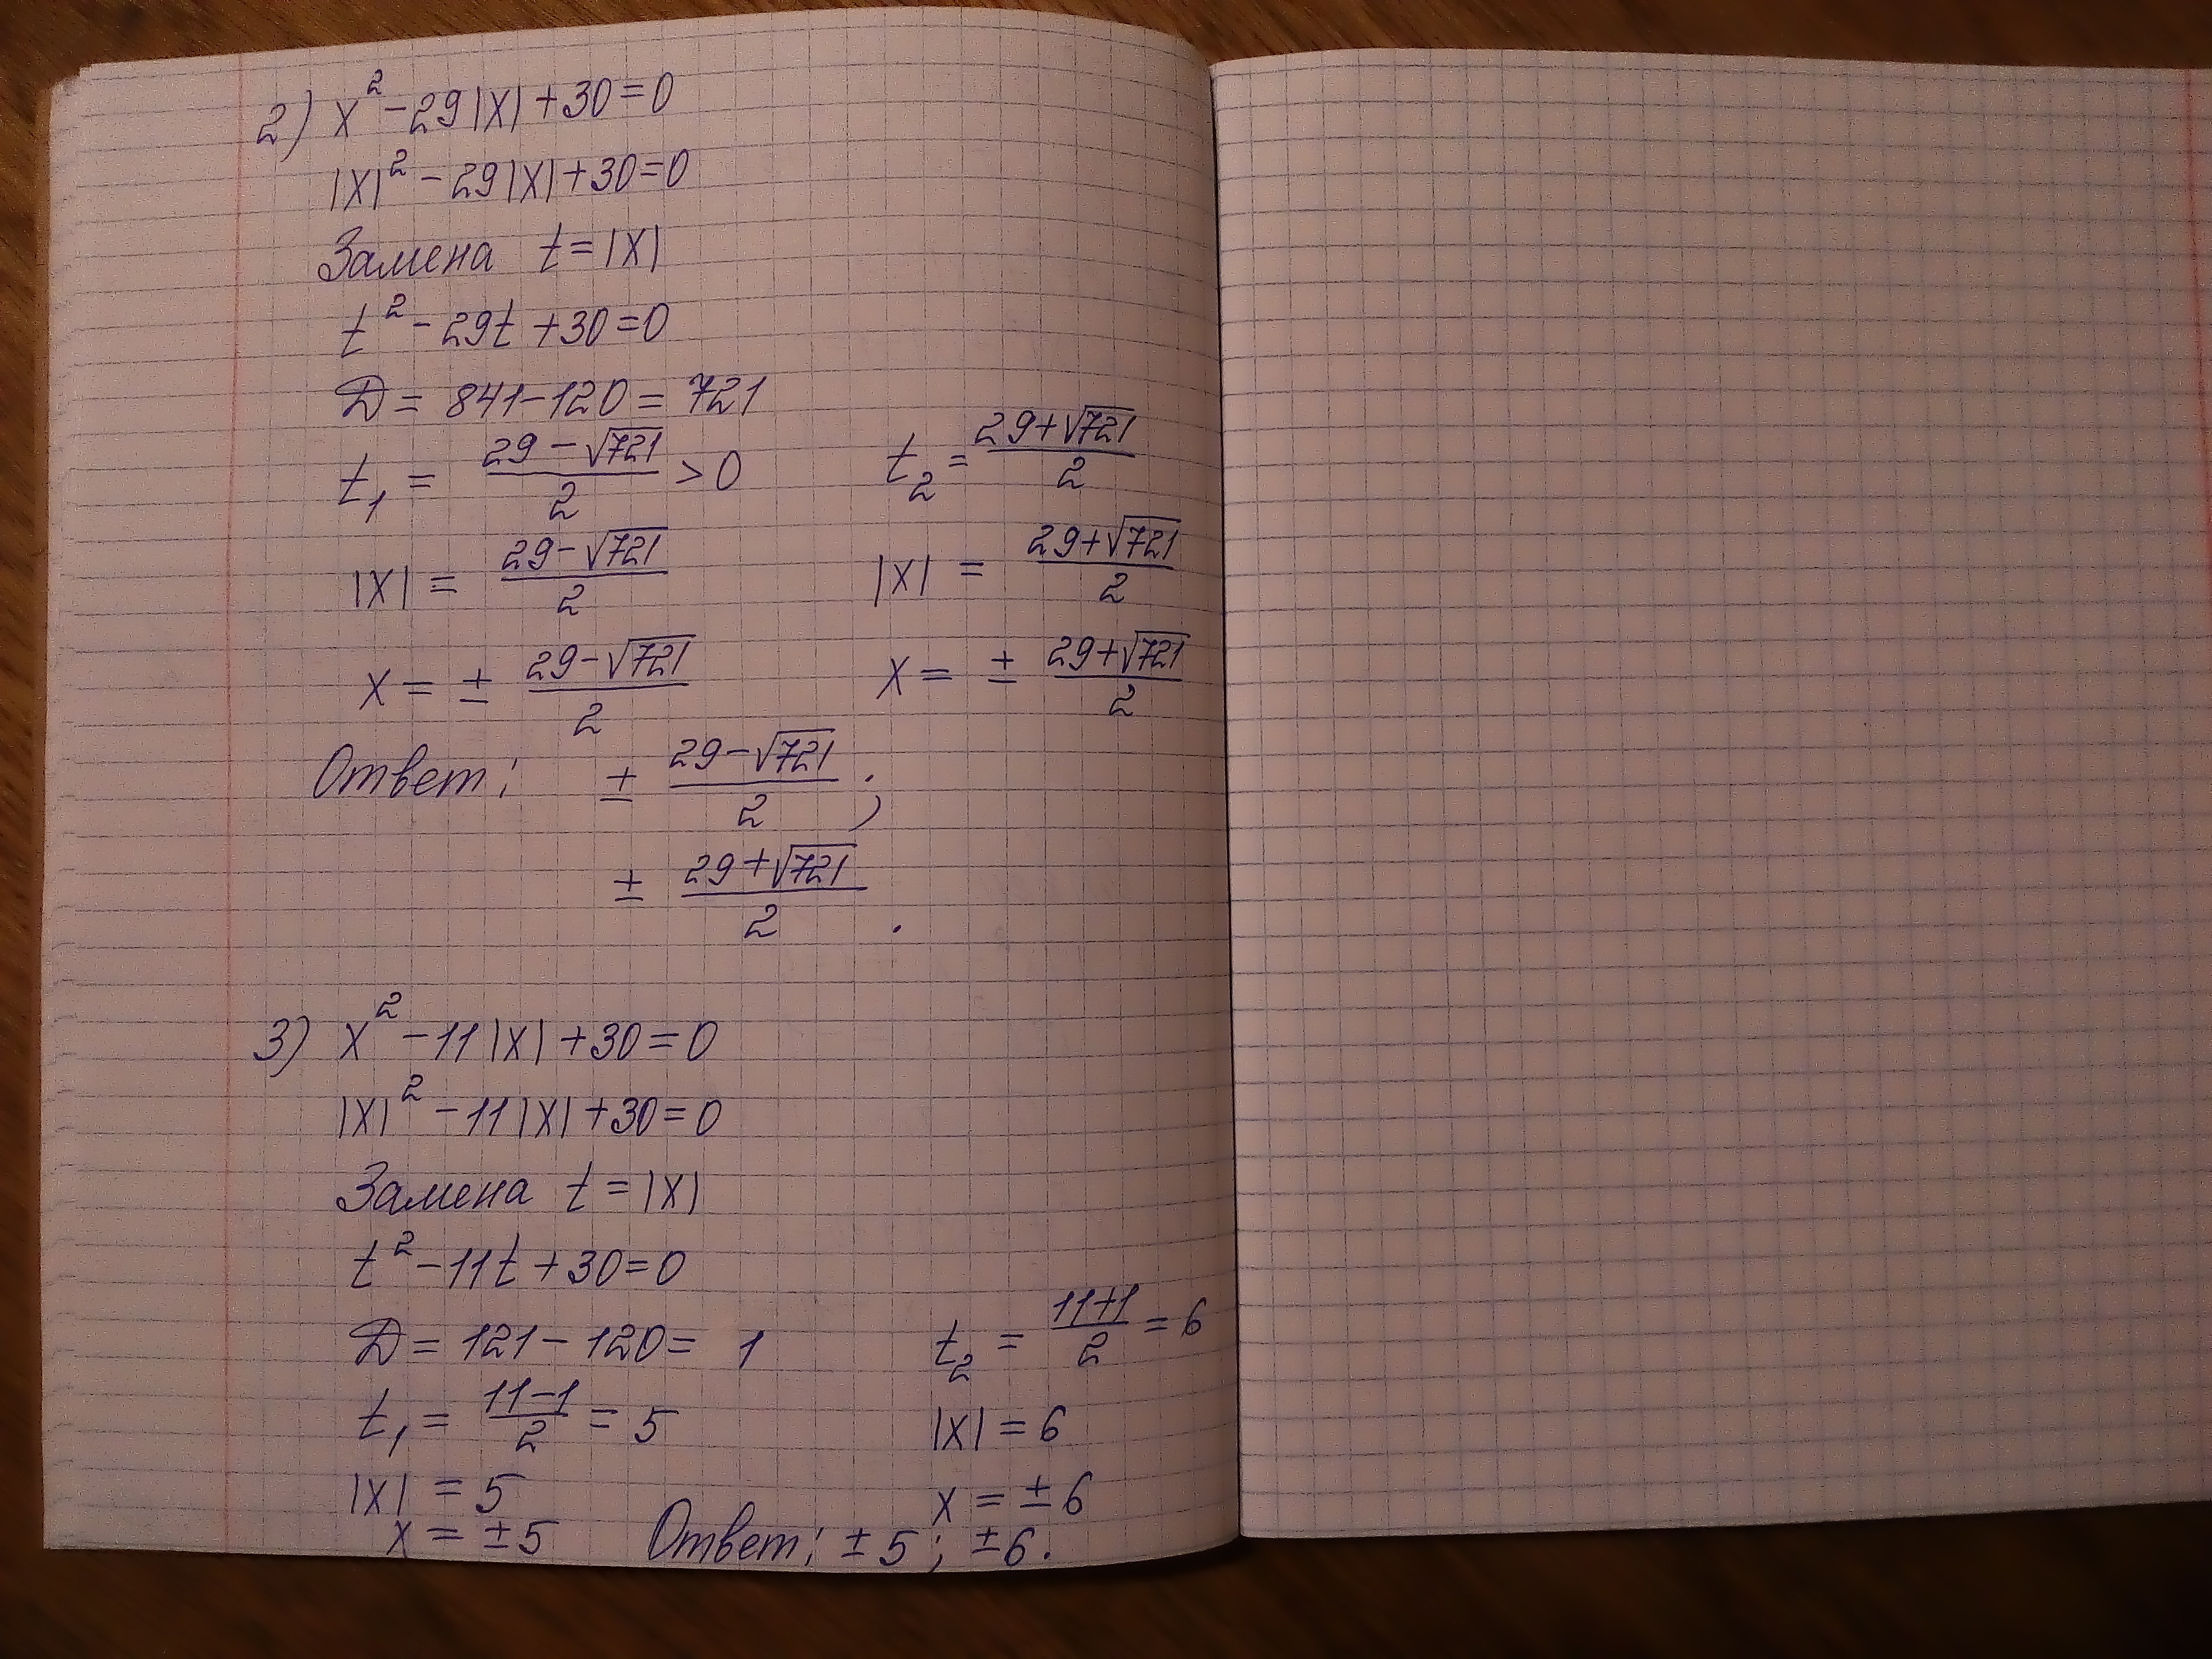 2) x² - 29|x| + 30 = 0
|x|² - 29|x| + 30 = 0
Замена t = |x|
t² - 29t + 30 = 0
D = 841 - 120 = 721
t₁ = (29 - √721)/2 > 0   t₂ = (29 + √721)/2
|x| = (29 - √721)/2   |x| = (29 + √721)/2
x = ± (29 - √721)/2   x = ± (29 + √721)/2
Ответ: ± (29 - √721)/2 ;
± (29 + √721)/2 .
3) x² - 11|x| + 30 = 0
|x|² - 11|x| + 30 = 0
Замена t = |x|
t² - 11t + 30 = 0
D = 121 - 120 = 1   t₂ = (11 + 1)/2 = 6
t₁ = (11 - 1)/2 = 5   |x| = 6
|x| = 5   x = ± 6
x = ± 5   Ответ: ± 5 ; ± 6 .